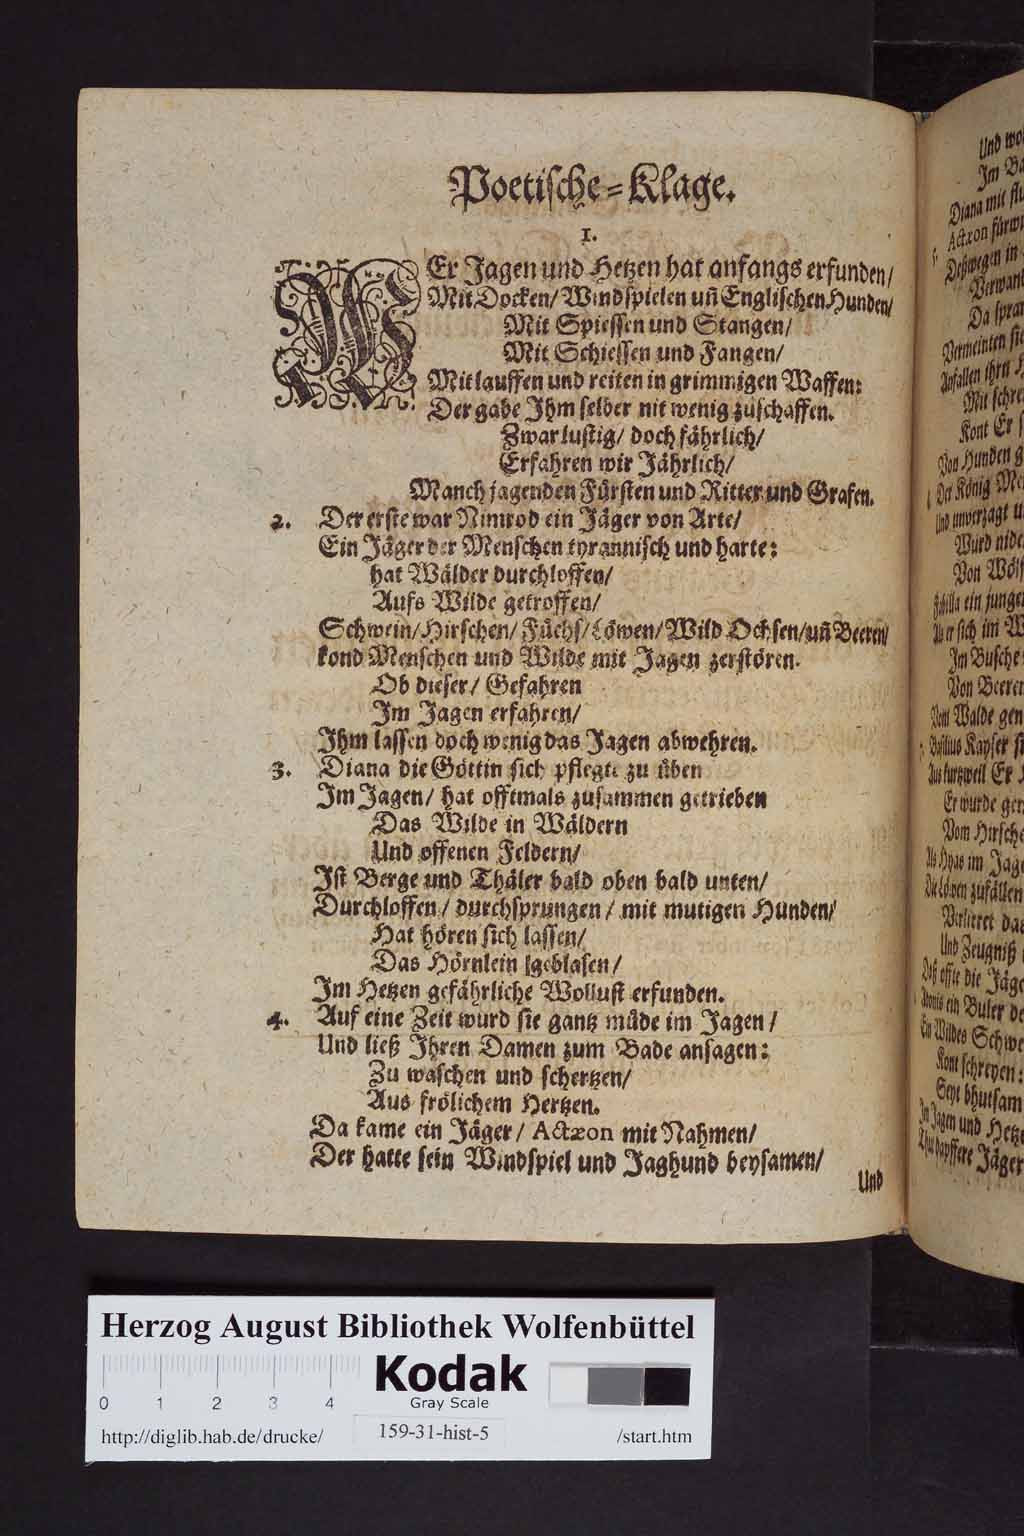 Poetische-Klage.
1.
WEr Jagen und Hetzen hat anfangs erfunden/
Mit Docken/ Windspielen uñ Englischen Hunden/
Mit Spiessen und Stangen/
Mit Schiessen und Fangen/
Mit lauffen und reiten in grimmigen Waffen:
Der gabe Ihm selber nit wenig zuschaffen.
Zwar lustig/ doch fährlich/
Erfahren wir Jährlich/
Manch jagenden Fürsten und Ritter und Grafen.
2. Der erste war Nimrod ein Jäger von Arte/
Ein Jäger der Menschen tyrannisch und harte:
hat Wälder durchloffen/
Aufs Wilde getroffen/
Schwein/ Hirschen/ Füchs/ Löwen/ Wild Ochsen/ uñ Beeren/
kond Menschen und Wilde mit Jagen zerstören.
Ob dieser/ Gefahren
Im Jagen erfahren/
Ihm lassen doch wenig das Jagen abwehren.
3. Diana die Göttin sich pflegte zu üben
Im Jagen/ hat offtmals zusammen getrieben
Das Wilde in Wäldern
Und offenen Feldern/
Ist Berge und Thäler bald oben bald unten/
Durchloffen/ durchsprungen/ mit mutigen Hunden/
Hat hören sich lassen/
Das Hörnlein geblasen/
Im Hetzen gefährliche Wollust erfunden.
4. Auf eine Zeit wurd sie gantz müde im Jagen/
Und ließ Ihren Damen zum Bade ansagen:
Zu waschen und schertzen/
Aus frölichem Hertzen.
Da kame ein Jäger/ Actæon mit Nahmen/
Der hatte sein Windspiel und Jaghund beysamen/
Und
Und
Im
Diana mit
Actæon
Deßwegen in
Da
Vermeinten
Anfallen ihrn
Mit
Kont Er
Von Hunden
Der König
Und unverzagt
Wurd
Von
ein
Als er sich im
Im Busche
Von Beeren
Vom Walde
Basilius Kayser
Aus kurtzweil Er
Er wurde
Vom
Als Hyas im
Die Löwen zufällen
Verlieret
Und Zeugniß
Daß offte die
Adonis ein Buler
Ein Wildes
Kont schreyen:
Seyt bhutsam
Im Jagen und
dapffere Jäger
Herzog August Bibliothek Wolfenbüttel
0 1 2 3 4
Kodak
Gray Scale
http://diglib.hab.de/drucke/ 159-31-hist-5 /start.htm